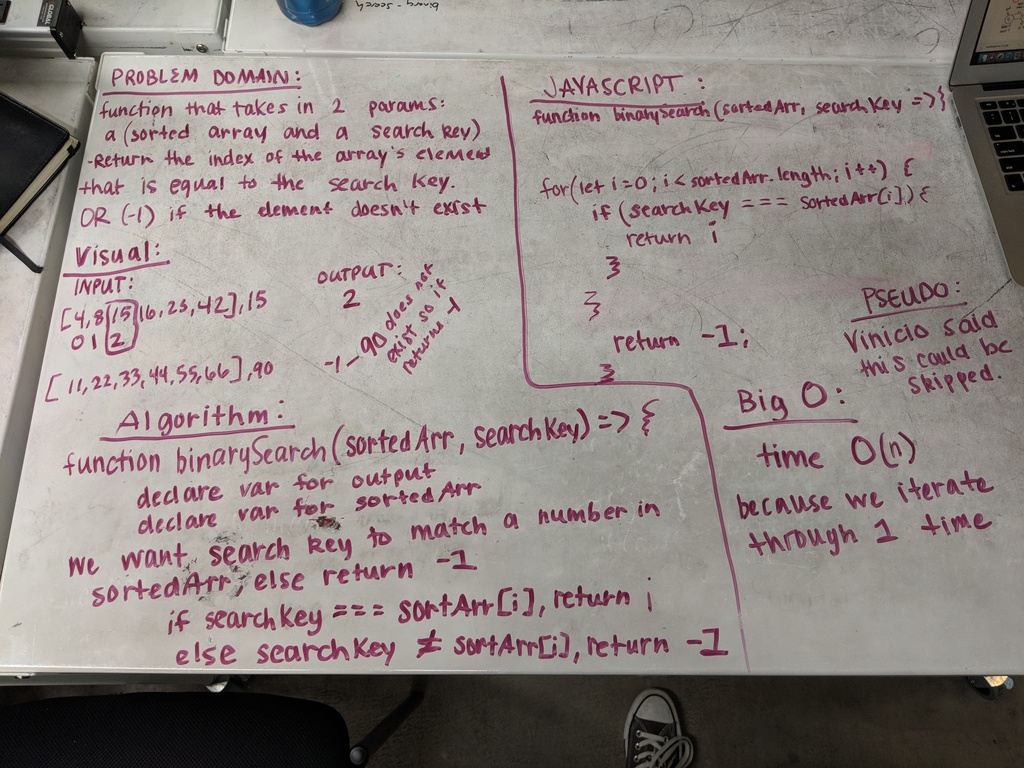 binary-search
GLOBAL
PROBLEM DOMAIN:
function that takes in 2 params:
a (sorted array and a search key)
-Return the index of the array's element
that is equal to the search key.
OR (-1) if the element doesn't exist
Visual:
INPUT:
[4,8,15,16,23,42],15
0 1 2
[11,22,33,44,55,66],90
OUTPUT:
2
-1 - 90 does not
exist so it
returns -1
Algorithm:
function binarySearch(sortedArr, searchKey) => {
declare var for output
declare var for sortedArr
we want search key to match a number in
sortedArr, else return -1
if searchKey === sortArr[i], return i
else searchKey ≠ sortArr[i], return -1
JAVASCRIPT:
function binarySearch(sortedArr, searchKey => {
for(let i=0; i<sortedArr.length; i++) {
if (searchKey === sortedArr[i]) {
return i
}
}
return -1;
}
PSEUDO:
Vinicio said
this could be
skipped.
Big O:
time O(n)
because we iterate
through 1 time